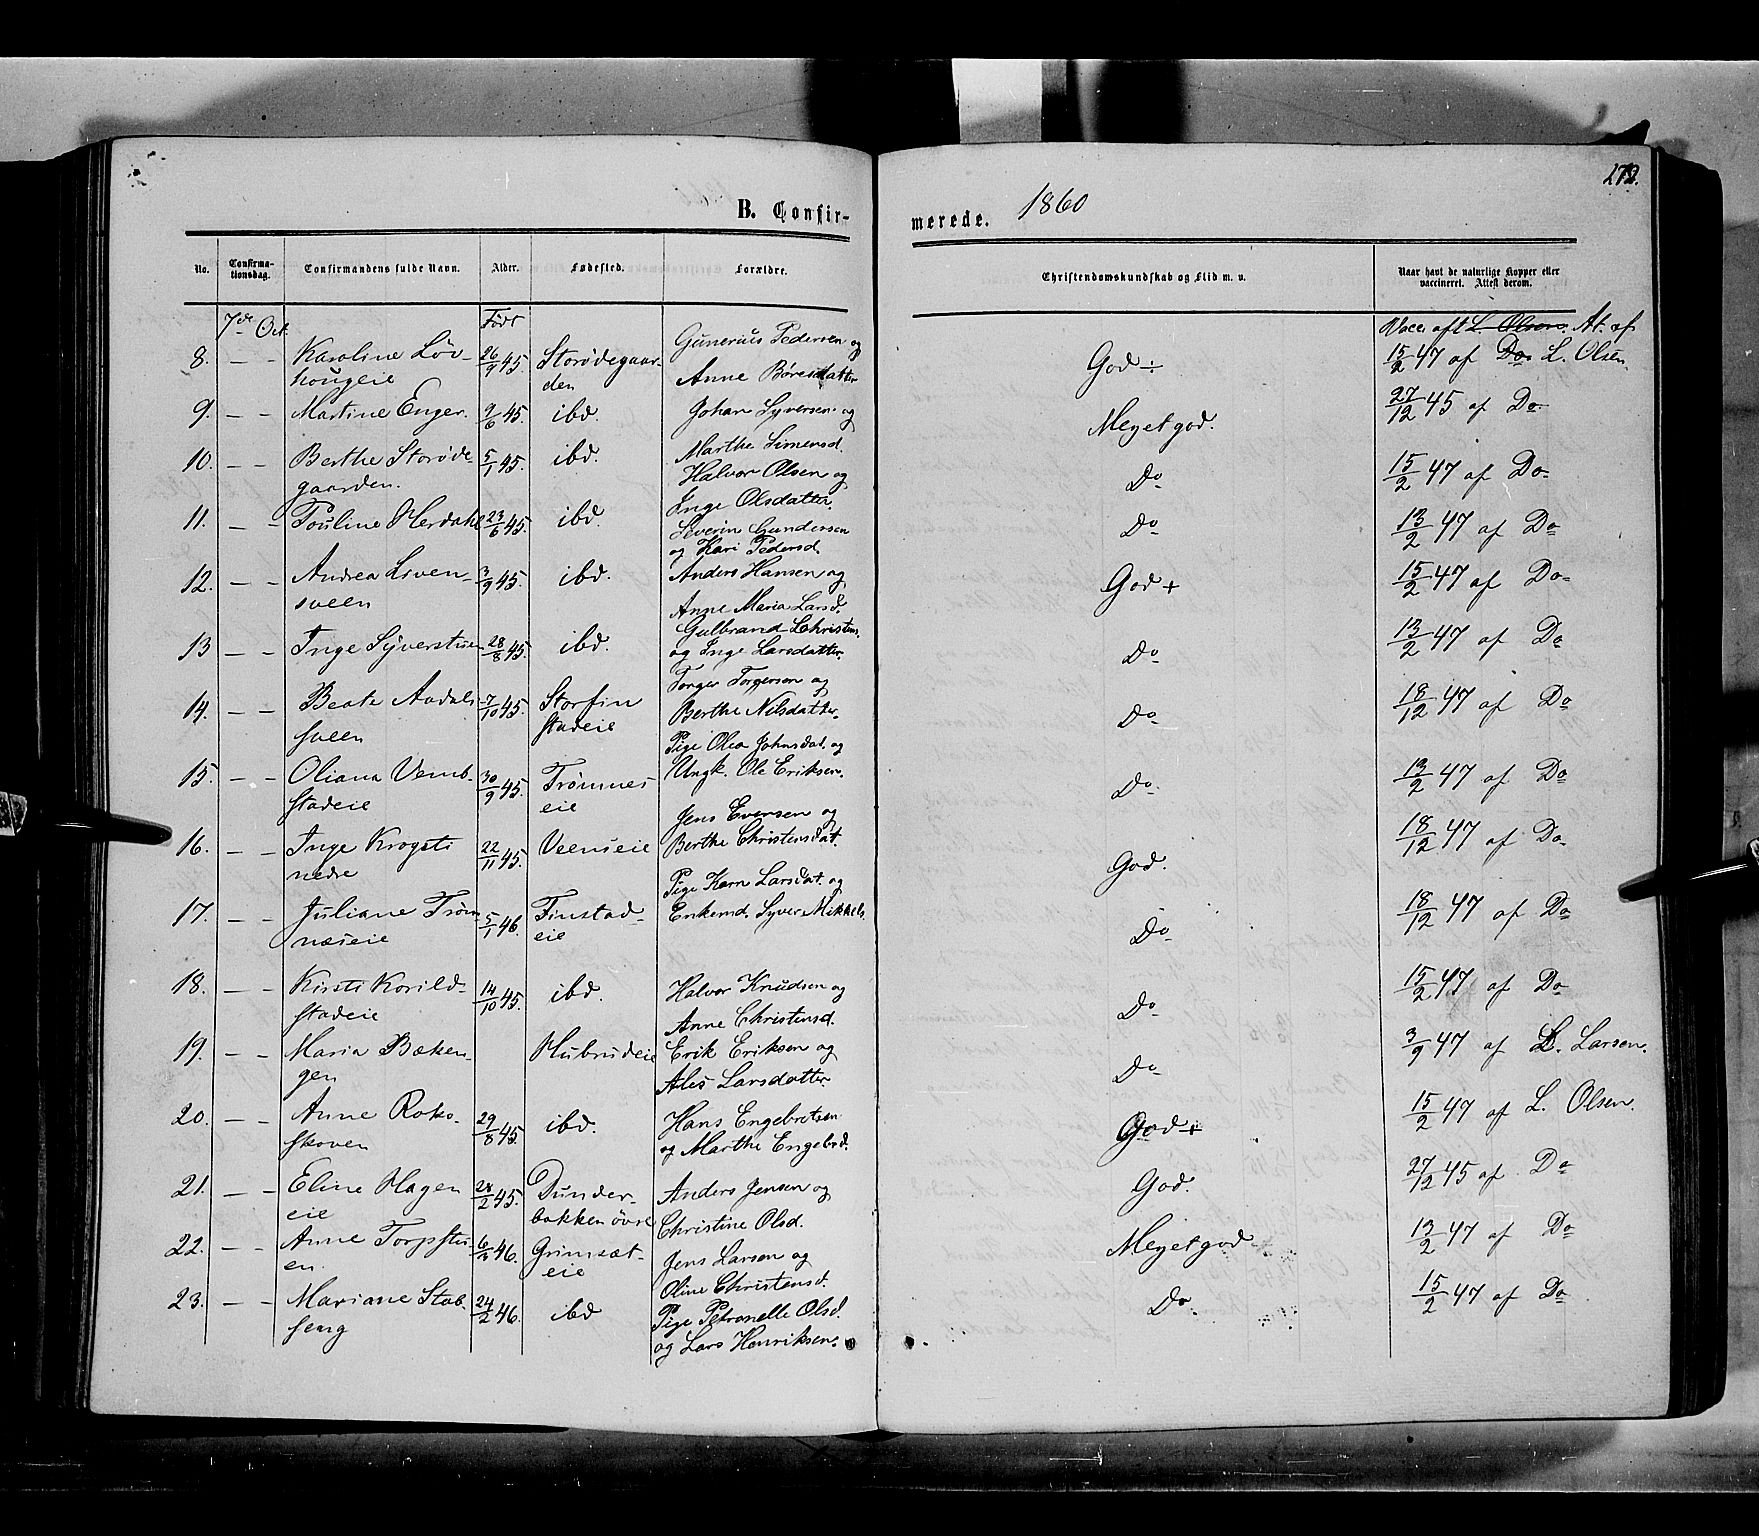 272.
B. Confir-
merede. 1860
No. Confirma-tionsdag. Confirmandens fulde Navn. Alder. Fødested. Forældre. Christendomskundskab og Flid m. v. Naar havt de naturlige Kopper eller vaccineret. Attest derom.
7de Oct. Født Gunerius Pedersen og Vacc. aft L. Olsen. At. af
8. — — Karoline Löv- 26/9 45. Storødegaar- God ÷ 15/2 47 af Do L. Olsen.
hougeie den Anne Børesdatter
9. — — Martine Enger. 9/6 45. ibd. Johan Syversen og Meget god. 27/12 45 af Do
Marthe Simensd.
10. — — Berthe Storøde- 5/1 45. ibd. Halvor Olsen og Do 15/2 47 af Do
gaarden. Inge Olsdatter.
11. — — Pouline Herdahl 23/6 45. ibd. Severin Gundersen Do 13/2 47 af Do
og Kari Pedersd.
12. — — Andrea Sven- 3/9 45. ibd. Anders Hansen og God + 15/2 47 af Do
sveen Anne Maria Larsd.
Gulbrand Christens.
13 — — Inge Syverstuen 28/8 45. ibd. og Inge Larsdatter. Do 13/2 47 af Do
Torger Torgersen og
14. — — Beate Aadals- 7/10 45. Storfin Berthe Nilsdatter. Do 18/12 47 af Do
sveen stadeie
Pige Olea Johnsdat. og
15. — — Oliana Vemb- 30/9 45. Trømnes Ungk. Ole Eriksen. Do 13/2 47 af Do
stadeie eie
Jens Evensen og
16. — — Inge Krogsti 22/11 45. Veenseie Berthe Christensdat. God. 18/12 47 af Do
nedre
Pige Karn Larsdat. og
17. — — Juliane Trøm 5/1 46. Finstad- Enkemd. Syver Mikkels. Do 18/12 47 af Do
næseie eie
18. — — Kirsti Korild- 14/10 45. ibd. Halvor Knudsen og Do 15/2 47 af Do
stadeie Anne Christensd.
19. — — Maria Bæken- Hubrudeie Erik Eriksen og Do 3/9 47 af L. Larsen.
gen Ales Larsdatter
20. — — Anne Roko- 29/8 45. ibd. Hans Engebretsen God + 15/2 47 af L. Olsen.
skoven og Marthe Engebrd.
21. — — Eline Hagen 28/2 45. Dunder- Anders Jensen og God. 27/12 45 af Do
eie bakken øvre Christine Olsd.
22. — — Anne Torpstu- 6/3 46. Grimsæt- Jens Larsen og Meget god 13/2 47 af Do
en. eie Oline Christensd.
23. — — Mariane Stab- 24/2 46. ibd Pige Petronelle Olsd. Do 15/2 47 af Do
seng og Lars Henriksen.